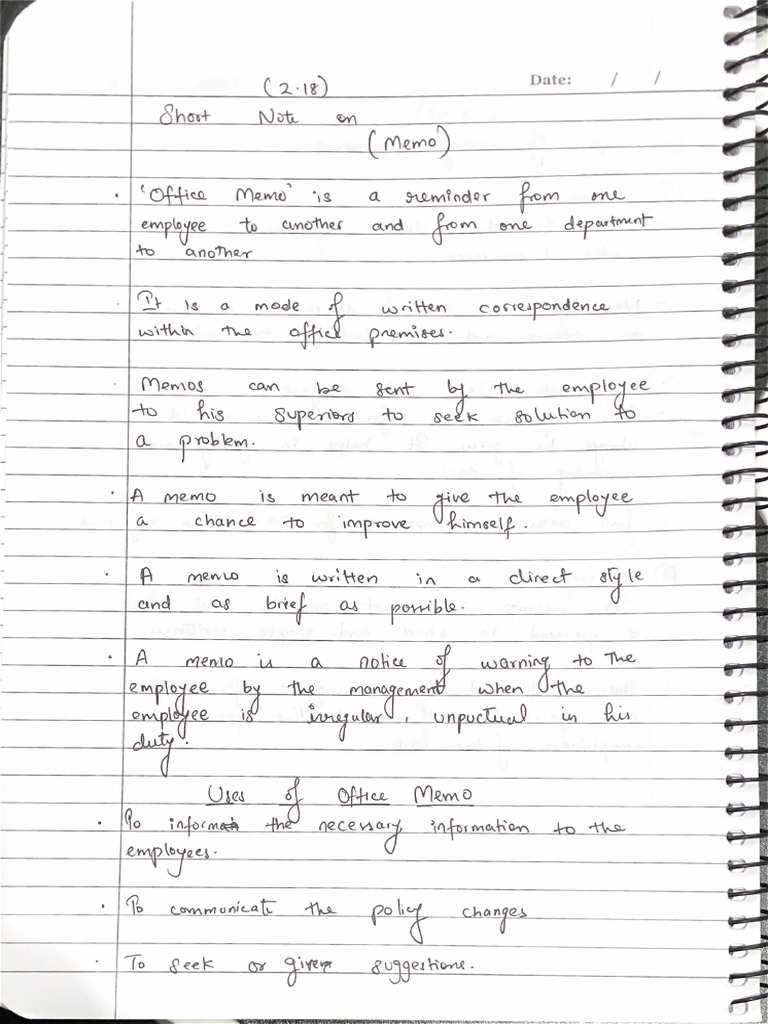 (2.18)
Date: / /
Short Note on
(Memo)
. 'Office Memo' is a reminder from one
employee to another and from one department
to another
. It is a mode of written correspondence
within the office premises.
Memos can be sent by the employee
to his superiors to seek solution to
a problem.
. A memo is meant to give the employee
a chance to improve himself.
. A memo is written in a direct style
and as brief as possible.
. A memo is a notice of warning to the
employee by the management when the
employee is irregular, unpuctual in his
duty.
Uses of Office Memo
. To inform the necessary information to the
employees.
. To communicate the policy changes
. To seek or give suggestions.